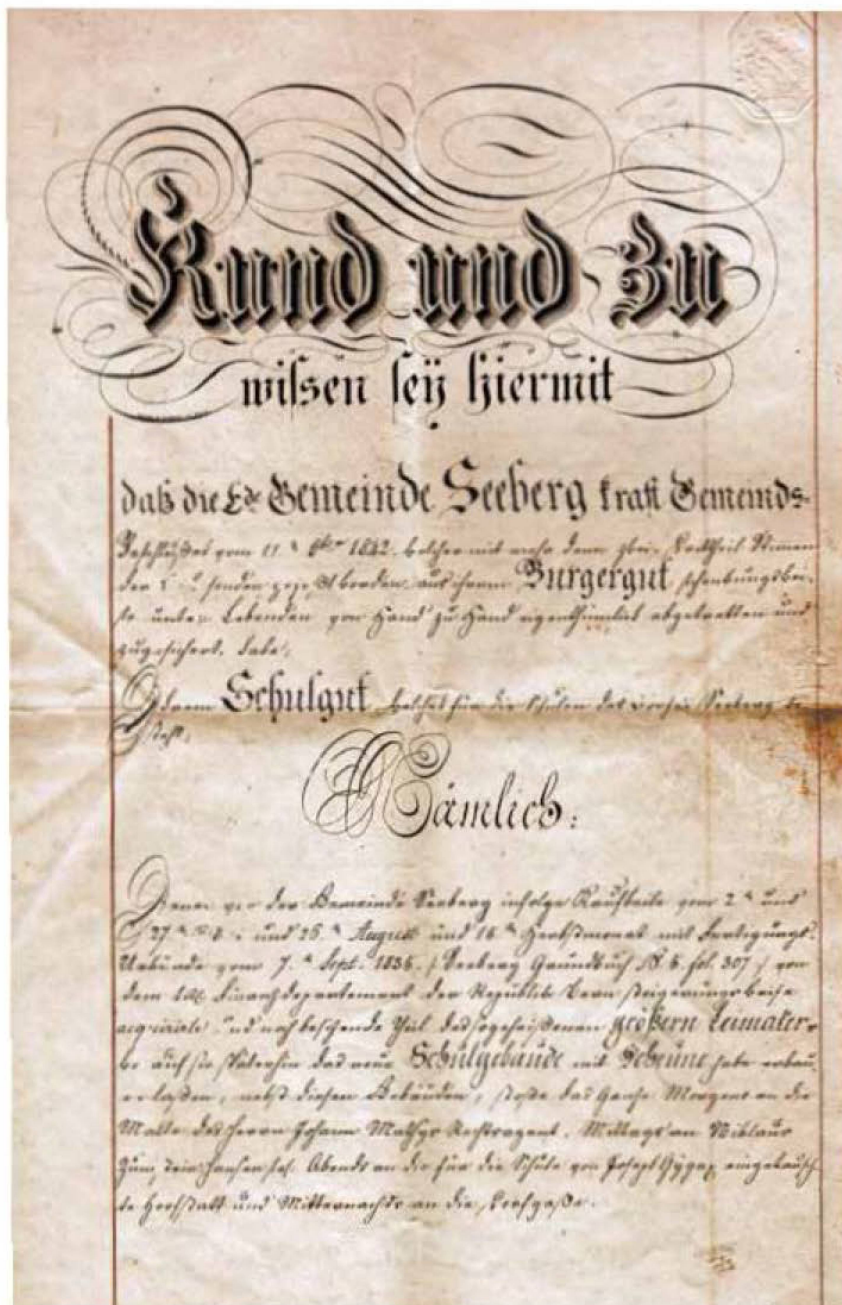 Kund und zu
wissen seÿ hiermit
daß die Ede Gemeinde Seeberg kraft Gemeinds-
Beschlußes vom 11. 1842. welcher mit mehr denn zwei Drittheil Stimmen
der worden, aus ihrem Burgergut schenkungswei-
se unter Lebenden von Hand zu Hand eigenthümlich abgetretten und
zugesichert habe,
Ihrem Schulgut, welches für die Schulen des Seeberg be-
steht,
Nämlich:
Denn von der Gemeinde Seeberg infolge Kaufsteile vom 2. und
27. und 25. August und 16. Herbstmonat mit Fertigungs-
Urkunde vom 7. Sept. 1836. / Seeberg Grundbuch N. 6. fol. 307 / von
dem Finanzdepartement der Republik Bern steigerungsweise
acquirirte und noch besitzende Theil des sogeheißenen größern Leimaker,
wo auf sie späterhin das neue Schulgebäude mit Scheune habe erbau-
en laßen, nebst diesen Gebäuden, stoße das Ganze Morgens an die
Matte des Herrn Johann Mathys Mittags an Niklaus
Abends an die für die Schule von Joseph Gÿgax eingetausch-
te Hofstatt und Mitternachts an die Dorfgaße.